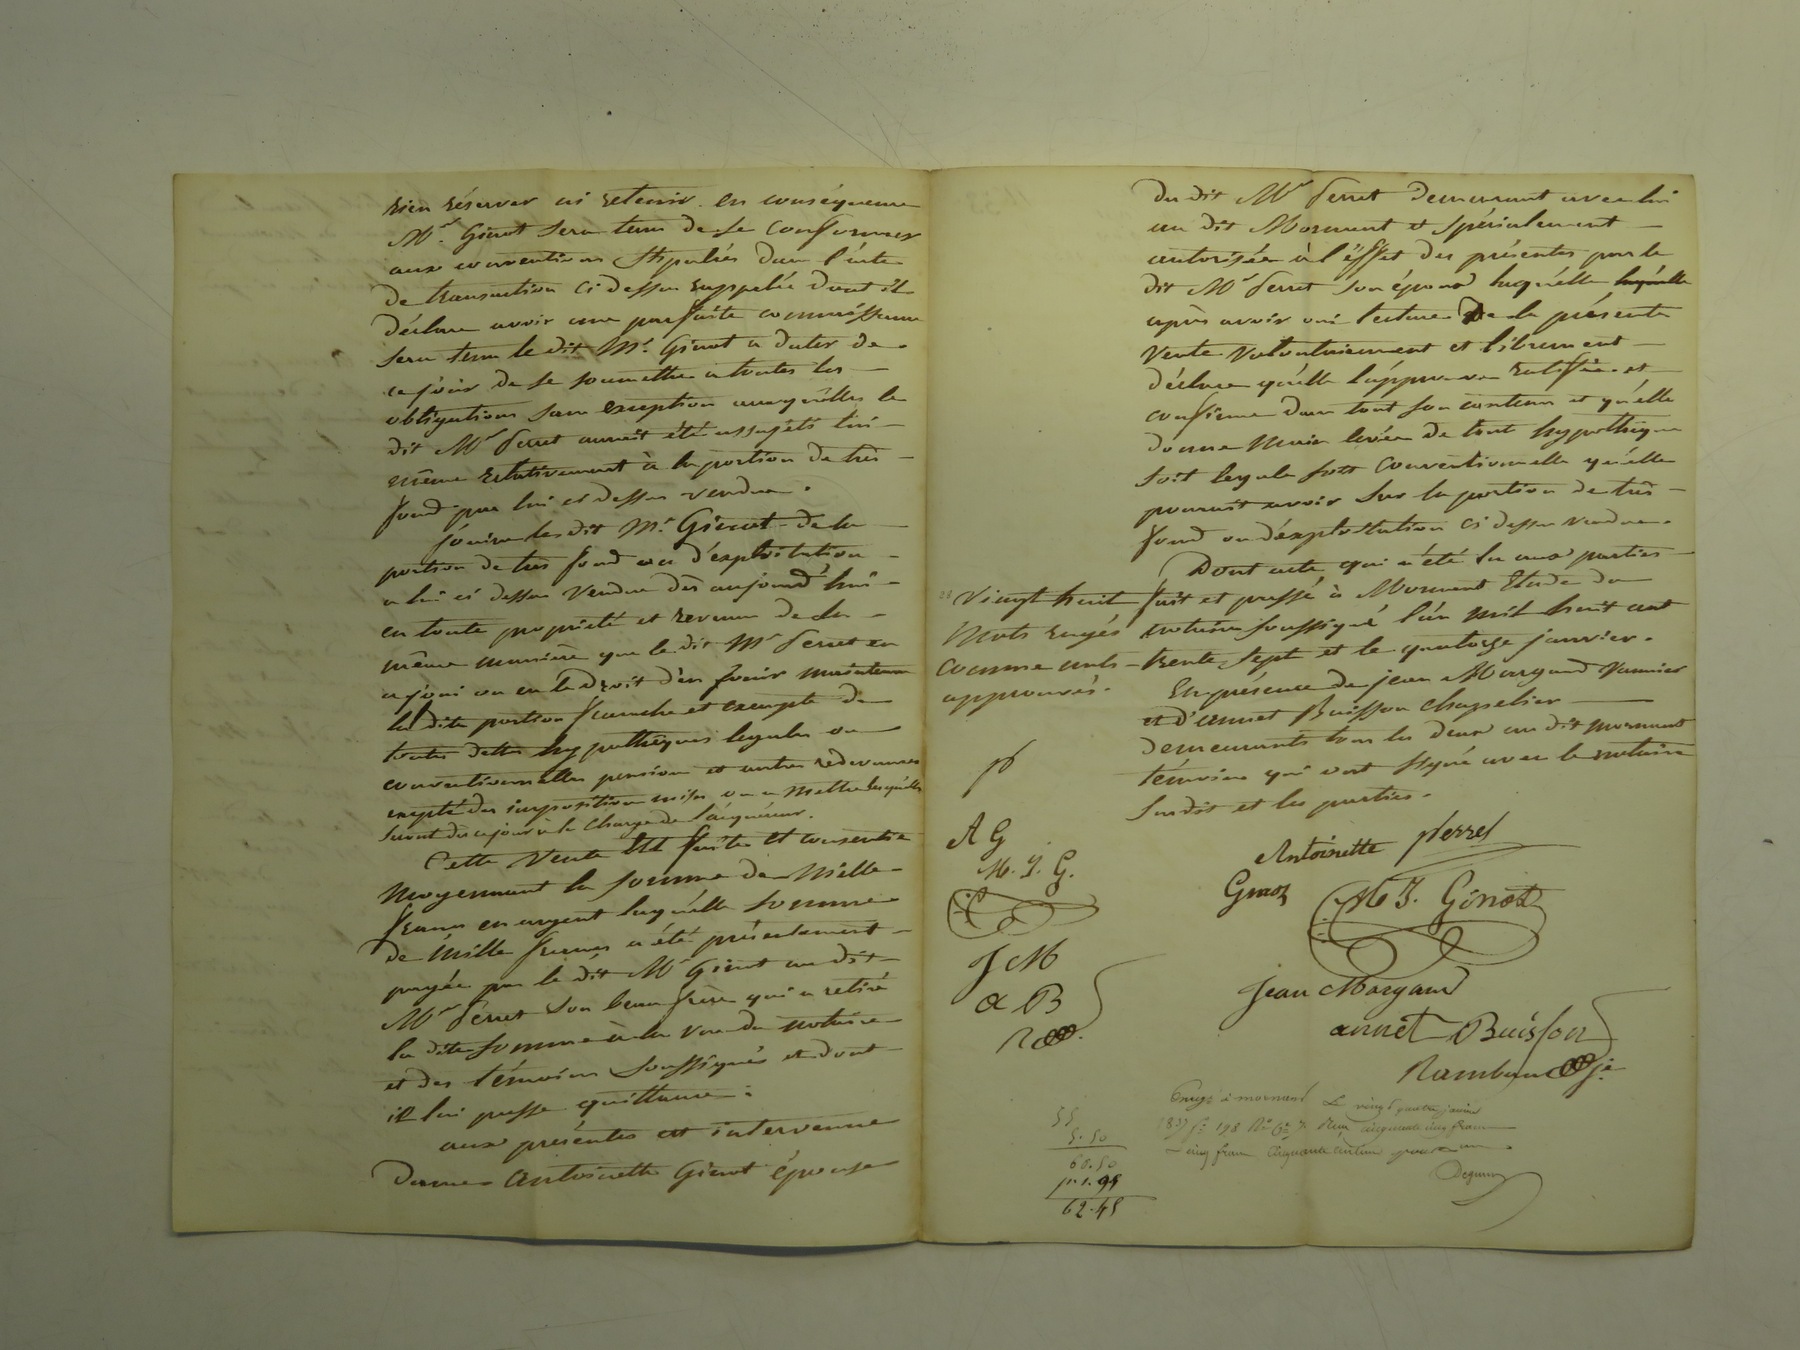 rien réserver ni retenir. en conséquence
Mr. Ginot sera tenu de se conformer
aux conventions stipulées dans l'acte
de transaction ci dessus rappelée dont il
déclare avoir une parfaite connaissance
sera tenu le dit Mr. Ginot a dater de
ce jour de se soumettre a toutes les
obligations sans exception auxquelles le
dit Mr Perret auroit été assujéti lui
même relativement à la portion de très
fond par lui ci dessus vendue.
Jouira le dit Mr. Ginot de la
portion de très fond ou d'exploitation
a lui ci dessus vendue dès aujourd'hui
en toute propriété et revenu de la
même manière que le dit Mr Perret en
a joui ou eu le droit d'en jouir maintenu
la dite portion franche et exempte de
toutes dettes hypothèques legales ou
conventionnelles pension et autres redevances
excepté des imposition mises ou a mettre lesquelles
seront dès ce jour à la charge de l'acquéreur.
Cette vente est faite et consentie
moyennant la somme de mille
francs en argent laquelle somme
de mille francs a été présentement
payée par le dit Mr Ginot au dit
Mr Perret son beau frère qui a retiré
la dite somme à la vue du notaire
et des témoins soussignés et dont
il lui passe quittance.
aux présentes est intervenue
Dame Antoinette Ginot épouse
du dit Mr Perret demeurant avec lui
au dit Mornant et spécialement
autorisée à l'éffet des présentes par le
dit Mr Perret son époux laquelle laquelle
après avoir oui lecture de la présente
vente volontairement et librement
déclare qu'elle l'approuve ratifie et
confirme dans tout son contenu et qu'elle
donne main levée de tout hypothèque
soit legale soit conventionnelle qu'elle
pourroit avoir sur la portion de très
fond ou d'éxploitation ci dessus vendue.
Dont acte qui a été lu aux parties
fait et passé à Mornant Etude du
notaire soussigné l'an mil huit cent
trente sept et le quatorze janvier.
En présence de jean Margand vannier
et d'annet Buisson chapelier
demeurants tous les deux au dit mornant
témoins qui ont signé avec le notaire
susdit et les parties.
28 Vingt huit
mots rayés
comme nuls
approuvés.
p
A G
M. J. G.
J M
a B
R
Antoinette perret
Ginot
M J. Ginot
Jean Margand
annet Buisson
Rambau
Enregé à mornant Le vingt quatre janvier
1837 fo 198 Ro Ce 7. Reçu cinquante cinq francs
cinq francs cinquante centimes pour
55
5.50
60.50
1.95
62.45